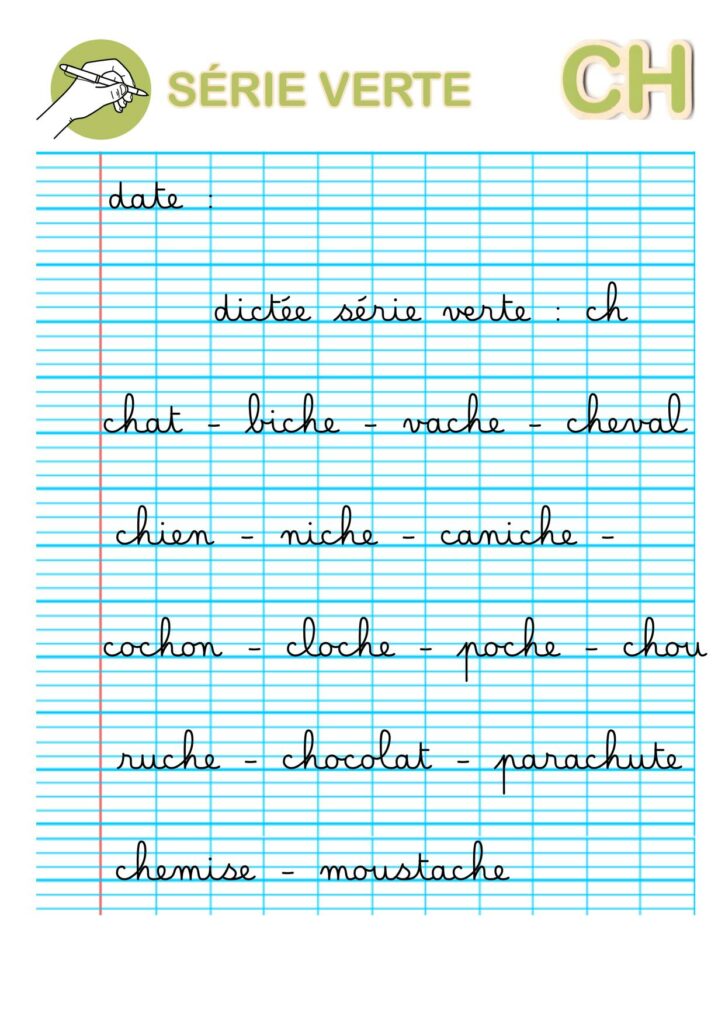 SÉRIE VERTE CH
date :
dictée série verte : ch
chat - biche - vache - cheval
chien - niche - caniche -
cochon - cloche - poche - chou
ruche - chocolat - parachute
chemise - moustache